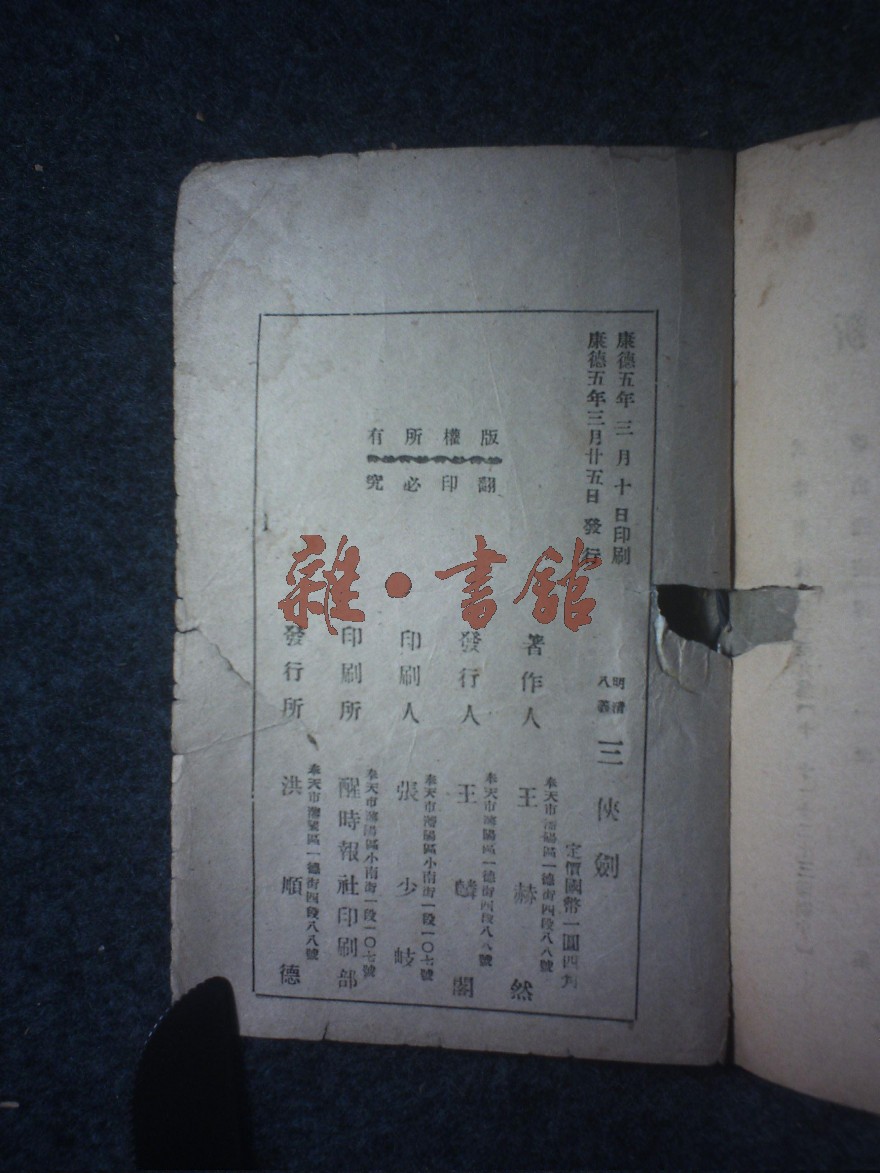 康德五年三月十日印刷
康德五年三月廿五日發行
明清
八義
三俠劍
定價國幣一圓四角
著作人
奉天市瀋陽區一德街四段八八號
王赫然
發行人
奉天市瀋陽區一德街四段八八號
王麟閣
印刷人
奉天市瀋陽區小南街一段一〇七號
張少岐
印刷所
奉天市瀋陽區小南街一段一〇七號
醒時報社印刷部
發行所
奉天市瀋陽區一德街四段八八號
洪順德
版權所有
翻印必究
雜·書館